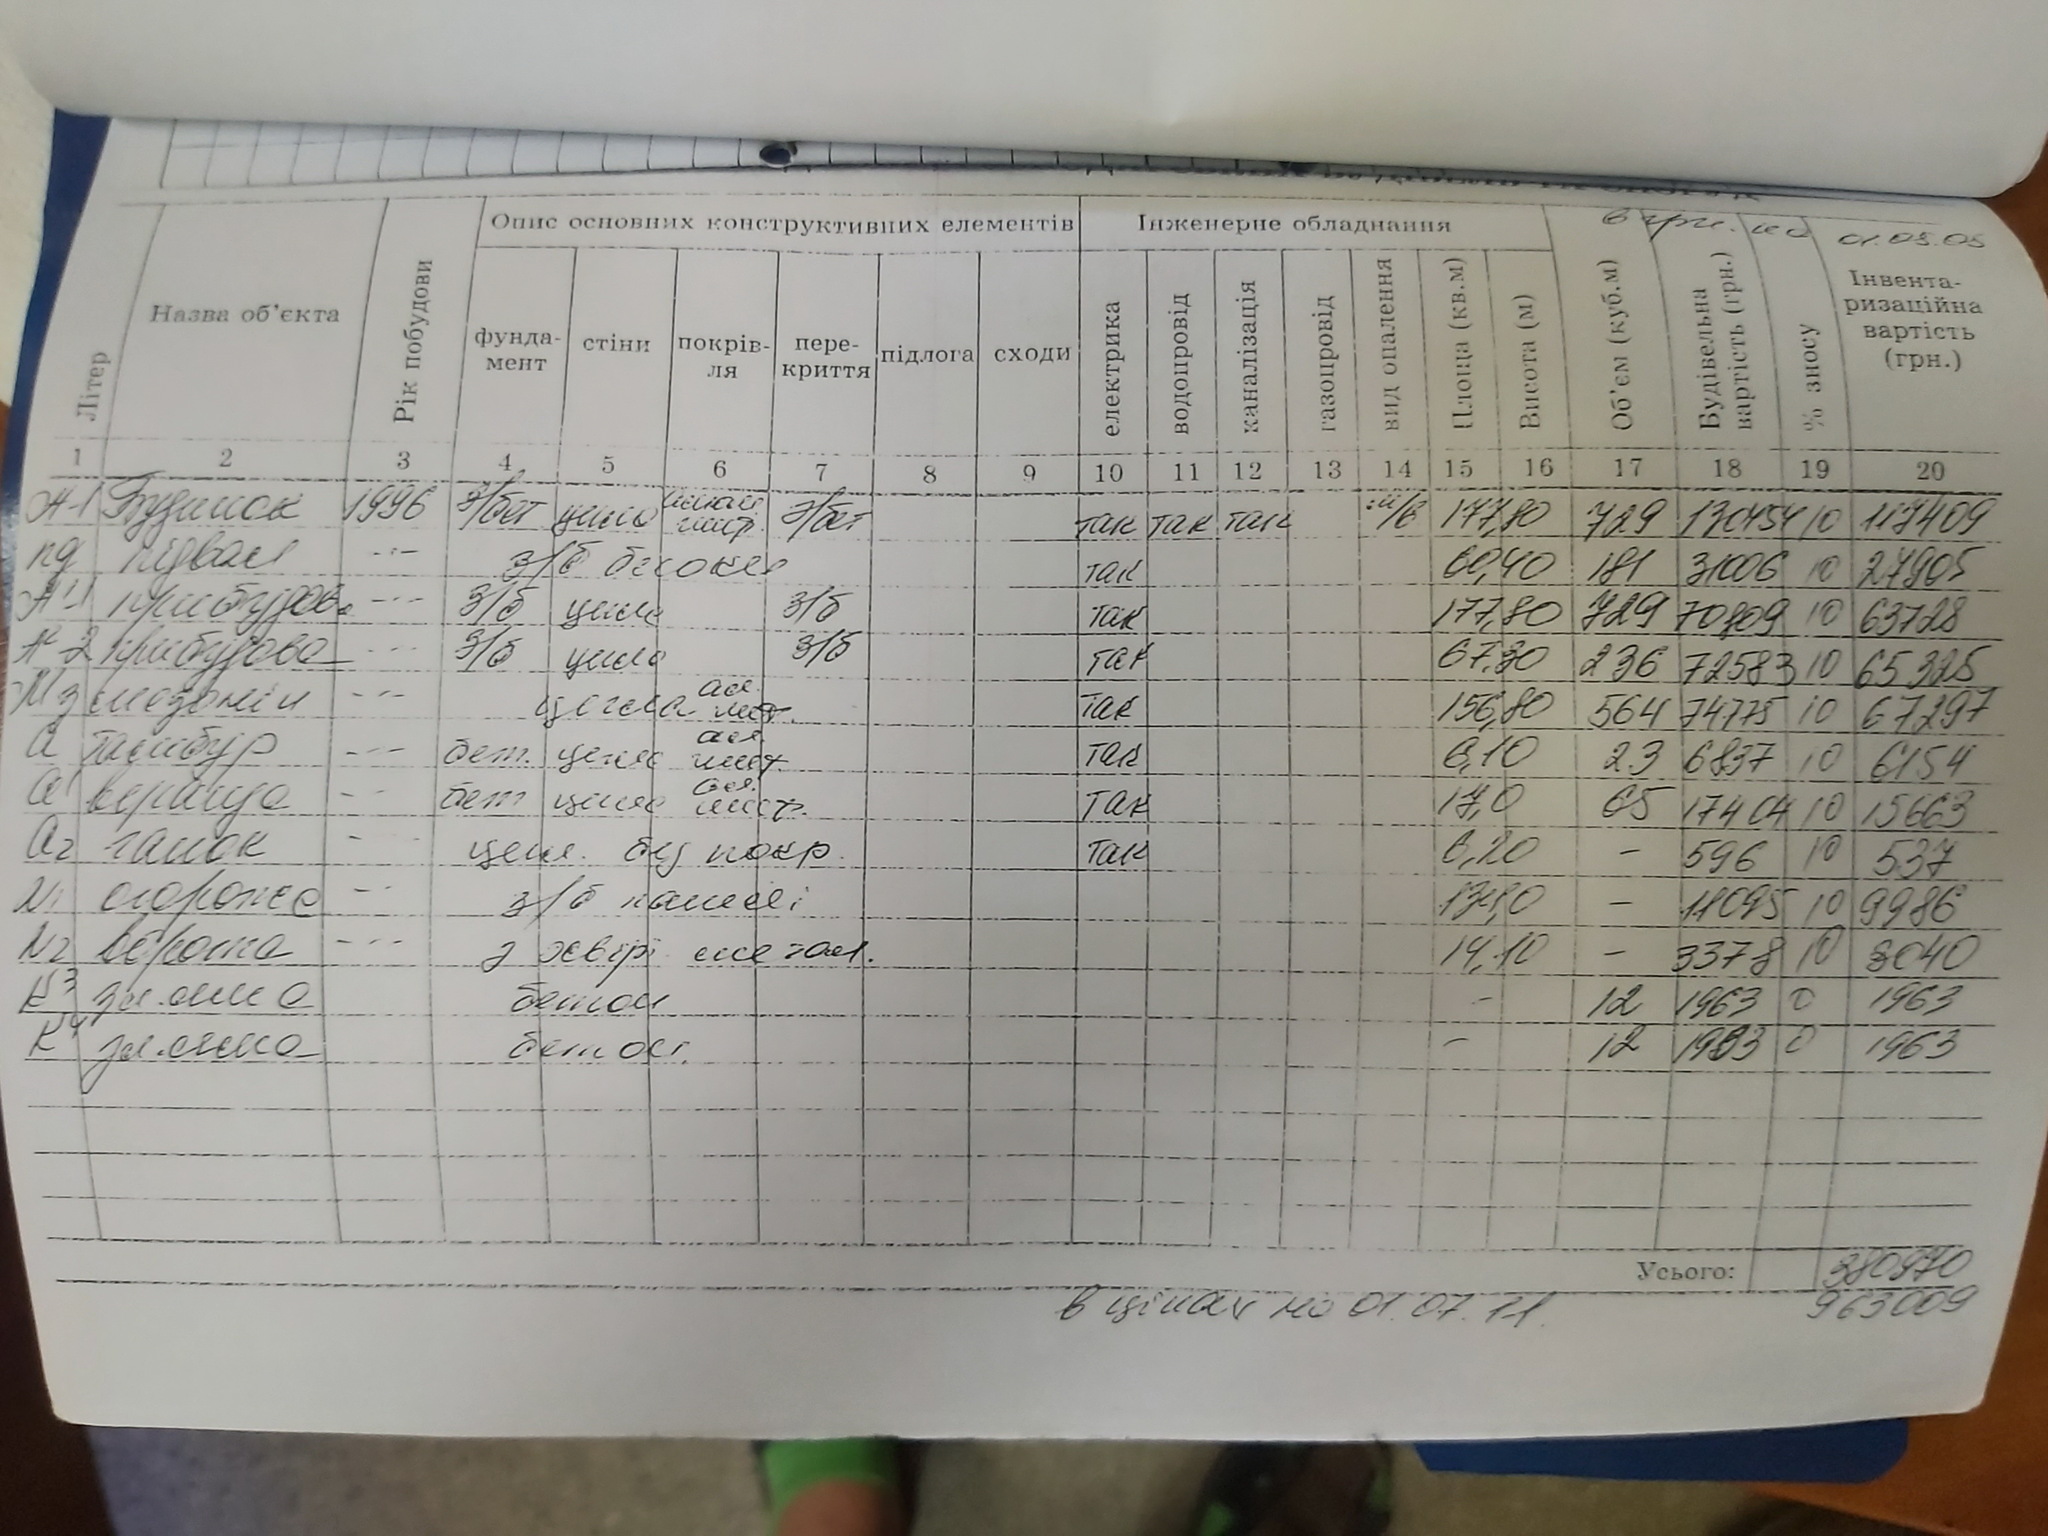 в грн. на 01.05.05
Опис основних конструктивних елементів Інженерне обладнання
Літер Назва об'єкта Рік побудови фунда-мент стіни покрів-ля пере-криття підлога сходи електрика водопровід каналізація газопровід вид опалення Площа (кв.м) Висота (м) Об'єм (куб.м) Будівельна вартість (грн.) % зносу Інвента-ризаційна вартість (грн.)
1 2 3 4 5 6 7 8 9 10 11 12 13 14 15 16 17 18 19 20
А-1 Будинок 1996 з/бет цегла з/бет так так так 177,80 729 130454 10 117409
пд підвал -"- з/б блоки так 60,40 181 31006 10 27905
А'-1 прибудова -"- з/б цегла з/б так 177,80 729 70809 10 63728
прибудова -"- з/б цегла з/б так 67,30 236 72583 10 65325
Мз мезонін -"- цегла аз. лист. так 156,80 564 74775 10 67297
а тамбур -"- бет. цегла аз. лист. так 6,10 23 6837 10 6154
а' веранда -"- бет цегла аз. лист. так 17,0 65 17404 10 15663
а2 ганок -"- цегл. без покр. так 6,20 - 596 10 537
N1 огорожа -"- з/б панелі - 11095 10 9986
N2 ворота -"- метал. 14,10 - 3378 10 3040
К3 бетон - 12 1963 0 1963
К4 бетон. - 12 1963 0 1963
Усього: 380970
в цінах на 01.07.11. 963009